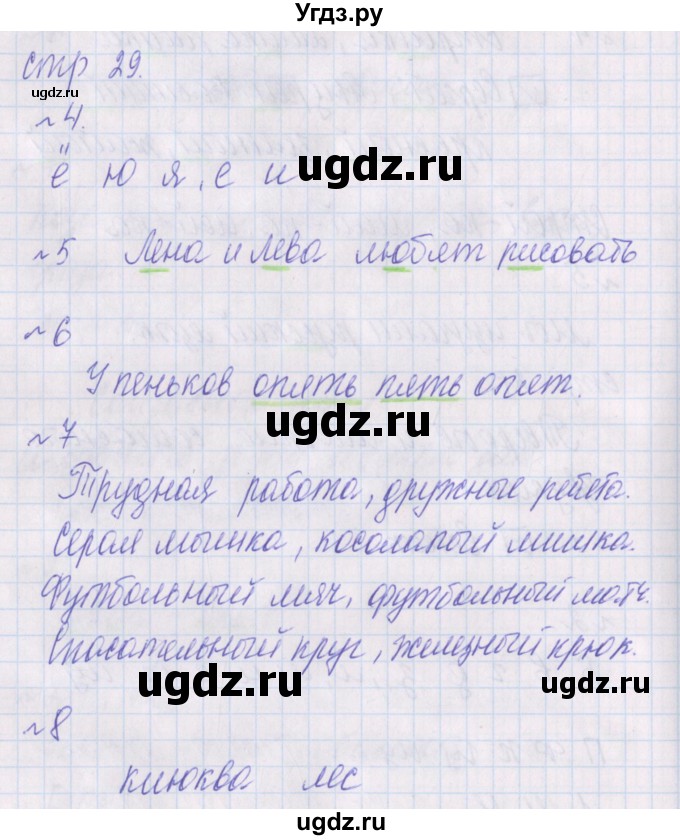 Угдз.ру
стр 29.
угдз.ру
~4.
ё ю я, е и
ugdz.ru
~5 Лена и Лева любят рисовать
~6
У пеньков опять пять опят.
ugdz.ru
~7
Трудная работа, дружные ребята.
Серая мышка, косолапый мишка.
Футбольный мяч, футбольный матч.
Спасательный круг, железный крюк.
ugdz.ru
ugdz.ru
~8
клюква лес
ugdz.ru
Угдз.ру